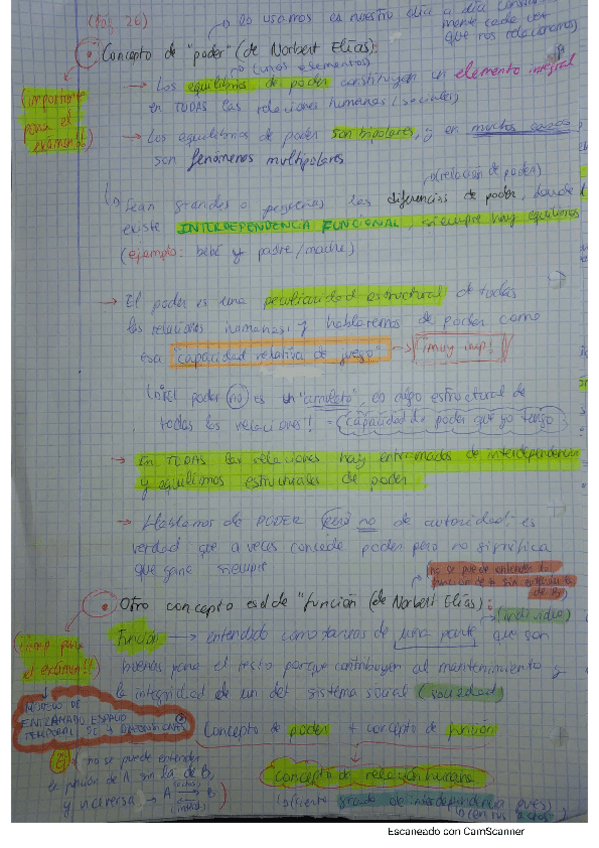 (pág 26)
→ Lo usamos en nuestro día a día
mente cada vez
que nos relacionamos
Concepto de "poder" (de Norbert Elías):
(importante
para el
examen!!)
→ Los equilibrios de poder constituyen un elemento integral
en TODAS las relaciones humanas (sociales)
→ Los equilibrios de poder son bipolares, y en muchos casos
son fenómenos multipolares
(relación de poder)
Sean grandes o pequeñas las diferencias de poder, donde
existe INTERDEPENDENCIA FUNCIONAL, siempre hay equilibrios
(ejemplo: bebé y padre/madre)
→ El poder es una peculiaridad estructural de todas
las relaciones humanas, y hablaremos de poder como
esa "capacidad relativa de juego" → ¡muy imp!
El poder no es un "amuleto", es algo estructural de
todas las relaciones! - capacidad de poder que yo tengo
→ En TODAS las relaciones hay entramados de interdependencia
y equilibrios estructurales de poder
→ Hablamos de PODER pero no de autoridad; es
verdad que a veces concede poder pero no significa
que gane siempre
no se puede entender la
función de A sin entender la
de B
Otro concepto es el de "función" (de Norbert Elías):
(individuo)
(imp para
el examen!!)
Función → entendido como tareas de una parte que son
buenas para el resto porque contribuyen al mantenimiento y
la integridad de un det sistema social (sociedad)
MODELO DE
ENTRAMADO
Concepto de poder + concepto de función
Ej
(no se puede entender
la función de A sin la de B,
y viceversa → A B)
concepto de relación humana
(siento grado de interdependencia
Escaneado con CamScanner